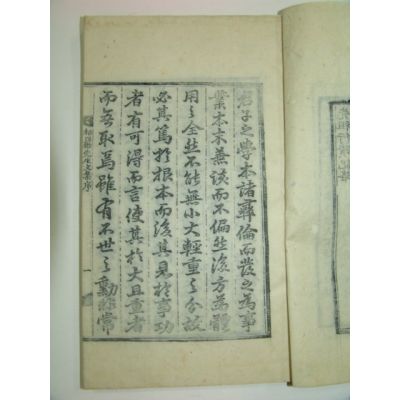 君子之學本諸彝倫而發之為事
業本末兼該而不偏然後方為體
用之全然不能無小大輕重之分故
必其篤於根本而後其見於事功
者有可得而言使其於大且重者
而無取焉雖有不世之勳非常
先生文集序